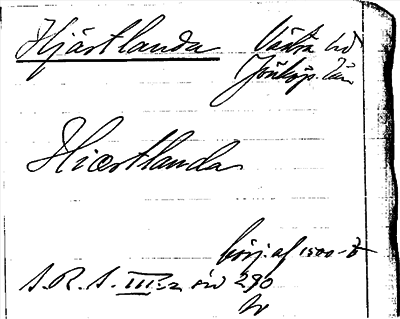 Hjärtlanda Västra hd
Jönköp. län
Hiærtlanda
börj. af 1500-t
S. R. S. III:2 sid 290